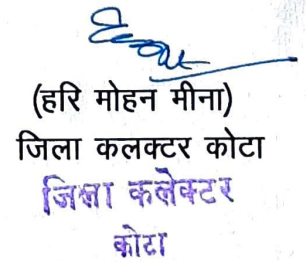 (हरि मोहन मीना)
जिला कलक्टर कोटा
जिला कलेक्टर
कोटा